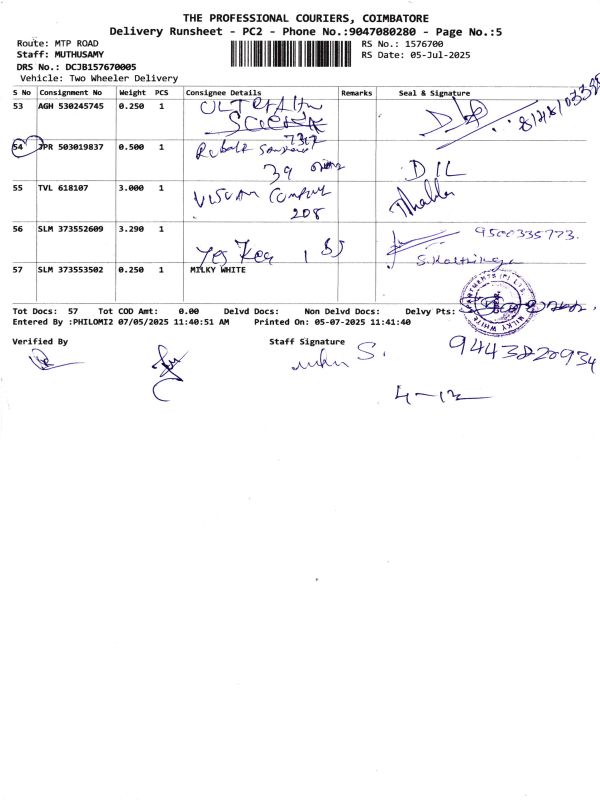 THE PROFESSIONAL COURIERS, COIMBATORE
Delivery Runsheet - PC2 - Phone No.:9047080280 - Page No.:5
Route: MTP ROAD
RS No.: 1576700
Staff: MUTHUSAMY
RS Date: 05-Jul-2025
DRS No.: DCJB157670005
Vehicle: Two Wheeler Delivery
S No Consignment No Weight PCS Consignee Details Remarks Seal & Signature
53 AGH 530245745 0.250 1
54 JPR 503019837 0.500 1
39
DIL
55 TVL 618107 3.000 1
208
56 SLM 373552609 3.290 1
9500335773.
57 SLM 373553502 0.250 1 MILKY WHITE
Tot Docs: 57 Tot COD Amt: 0.00 Delvd Docs: Non Delvd Docs: Delvy Pts:
Entered By :PHILOMI2 07/05/2025 11:40:51 AM Printed On: 05-07-2025 11:41:40
Verified By Staff Signature
9443820934
4-12